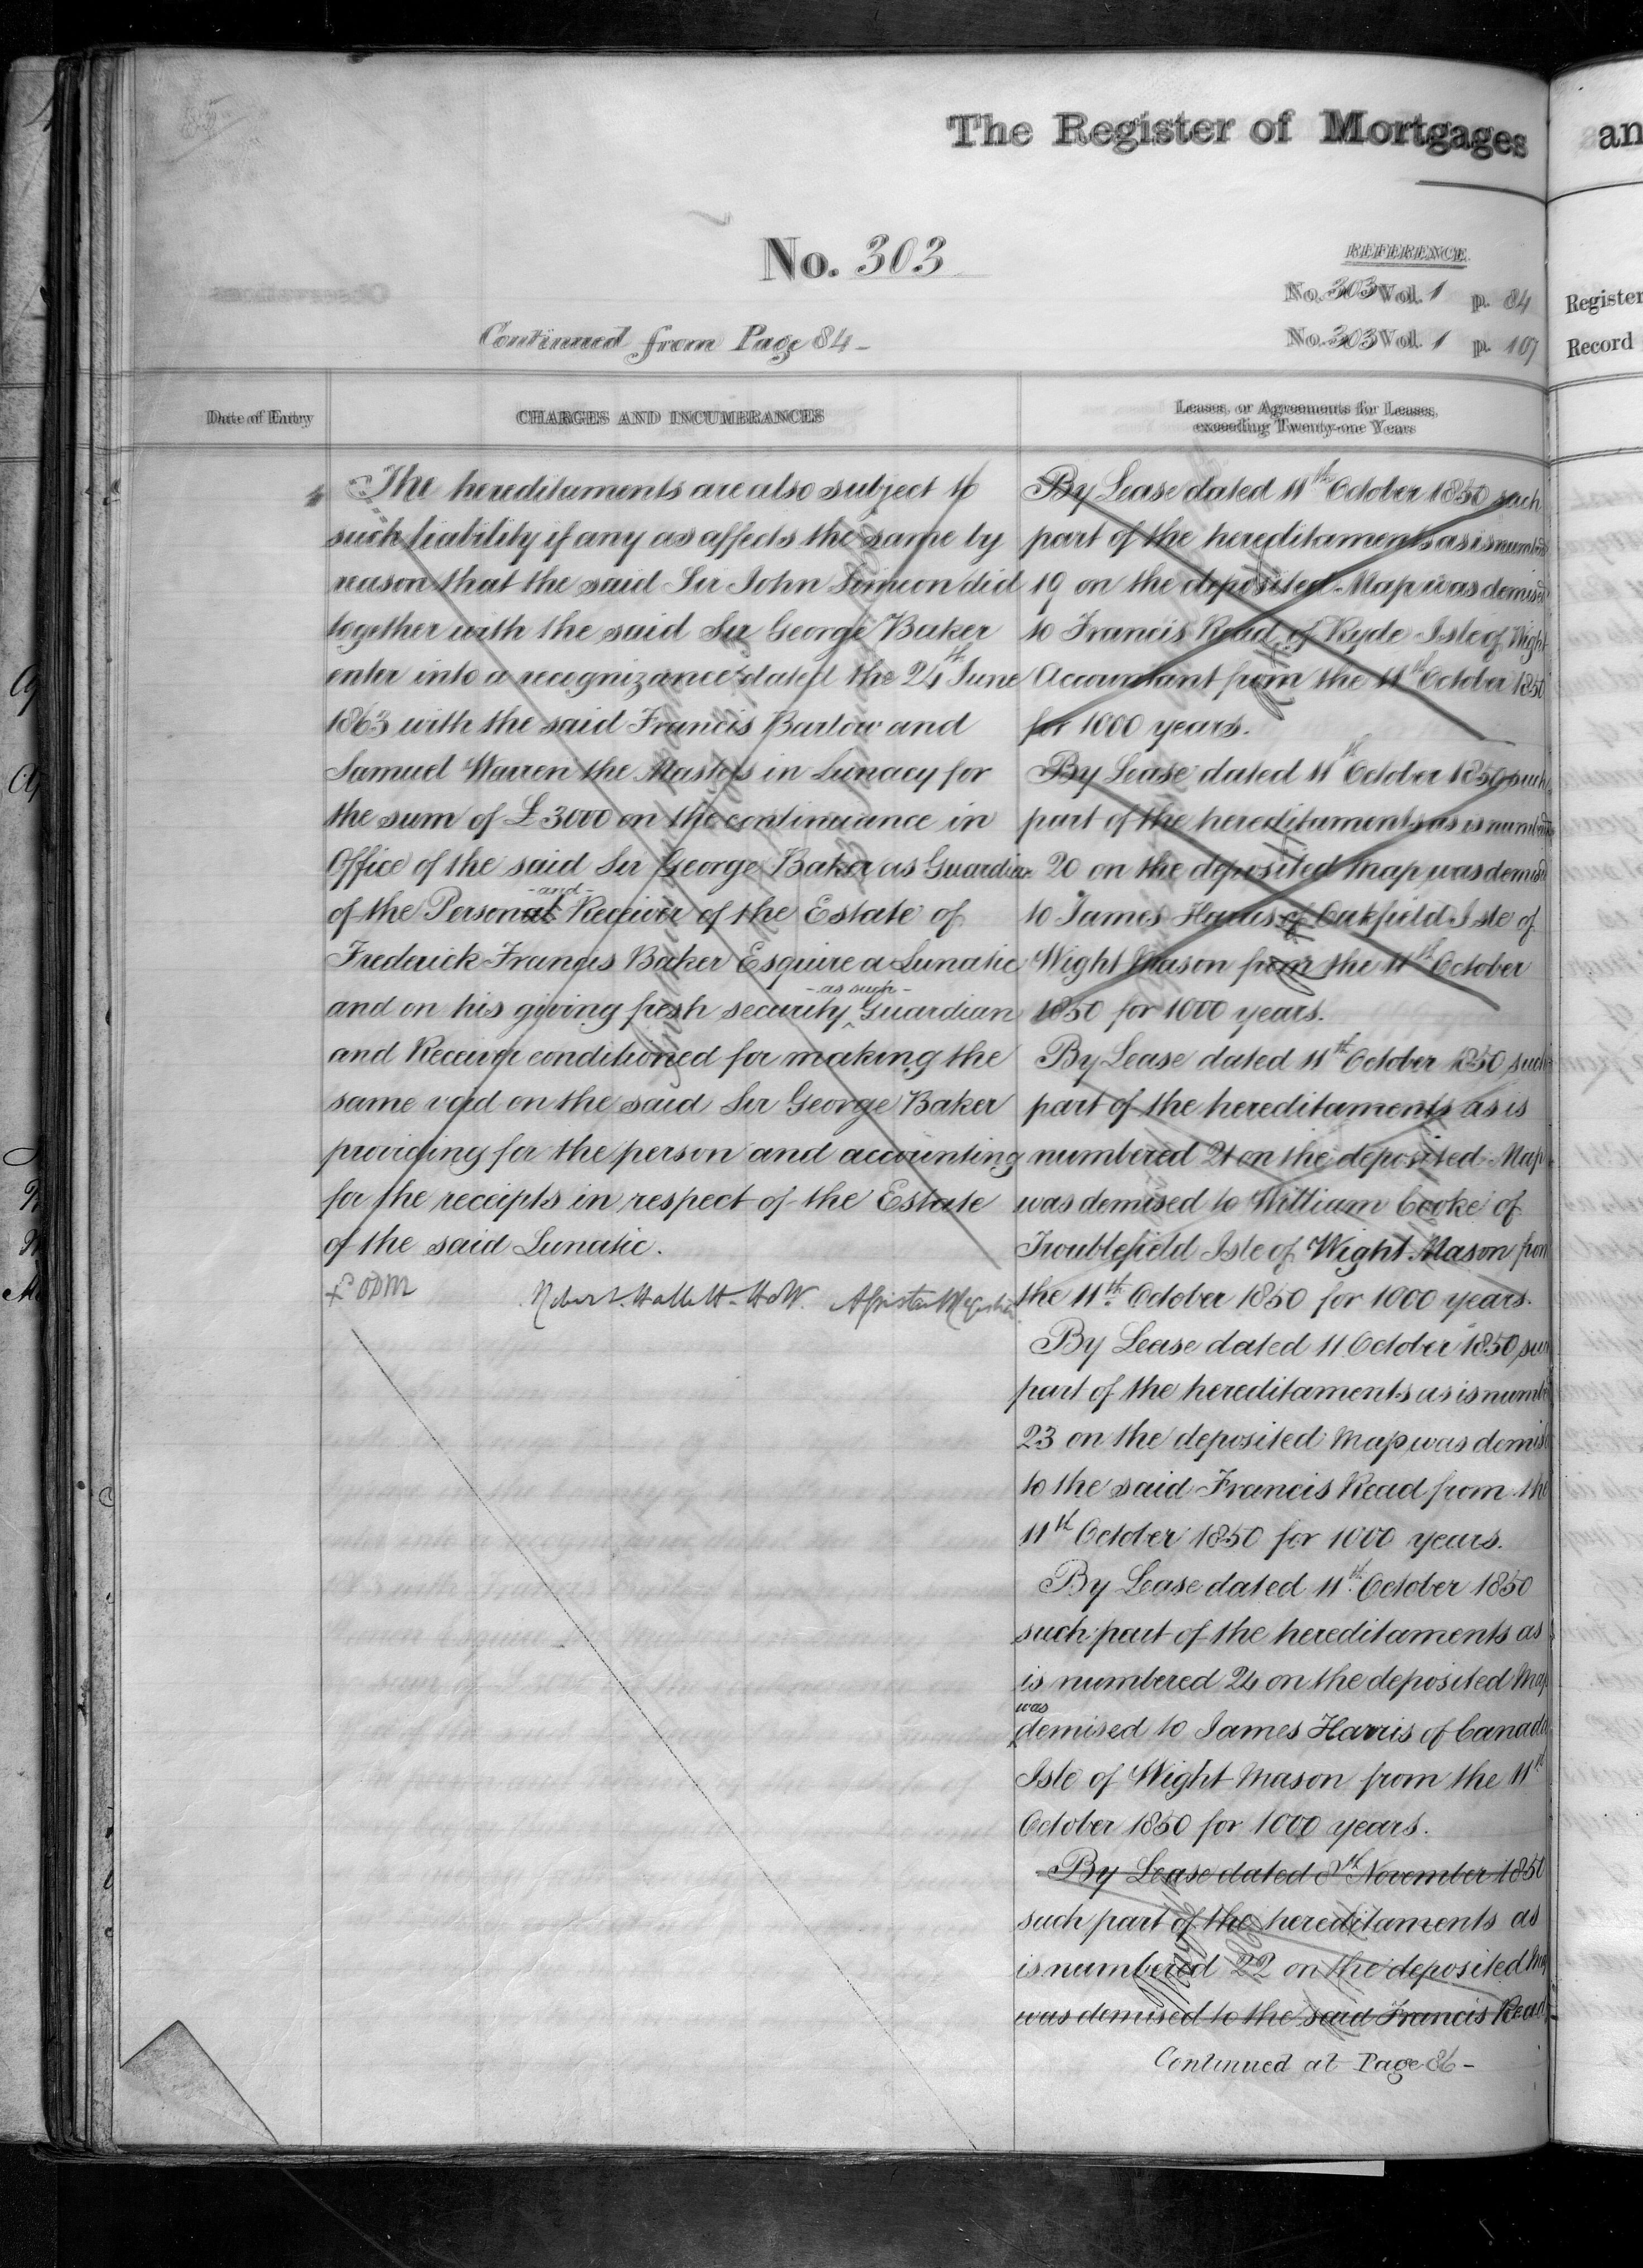 The Register of Mortgages
No. 303
REFERENCE.
No. 303 Vol. 1 p. 84
No. 303 Vol. 1 p. 107
Continued from Page 84-
Date of Entry
CHARGES AND INCUMBRANCES
Leases, or Agreements for Leases,
exceeding Twenty-one Years
The hereditaments are also subject to
such liability if any as affects the same by
reason that the said Sir John Simeon did
together with the said Sir George Baker
enter into a recognizance dated the 24th June
1863 with the said Francis Barlow and
Samuel Warren the Masters in Lunacy for
the sum of £3000 on the continuance in
Office of the said Sir George Baker as Guardian
-and-
of the Personal Receiver of the Estate of
Frederick Francis Baker Esquire a Lunatic
-as such-
and on his giving fresh security Guardian
and Receiver conditioned for making the
same void on the said Sir George Baker
providing for the person and accounting
for the receipts in respect of the Estate
of the said Lunatic.
By Lease dated 11th October 1850 such
part of the hereditaments as is numbered
19 on the deposited Map was demised
to Francis Read of Ryde Isle of Wight
Accountant from the 11th October 1850
for 1000 years.
By Lease dated 11th October 1850 such
part of the hereditaments as is numbered
20 on the deposited Map was demised
to James Harris of Oakfield Isle of
Wight Mason from the 11th October
1850 for 1000 years.
By Lease dated 11th October 1850 such
part of the hereditaments as is
numbered 21 on the deposited Map
was demised to William Cooke of
Troublefield Isle of Wight Mason from
the 11th October 1850 for 1000 years.
By Lease dated 11 October 1850 such
part of the hereditaments as is numbered
23 on the deposited Map was demised
to the said Francis Read from the
11th October 1850 for 1000 years.
By Lease dated 11th October 1850
such part of the hereditaments as
is numbered 24 on the deposited Map
was
demised to James Harris of Canada
Isle of Wight Mason from the 11th
October 1850 for 1000 years.
By Lease dated 8th November 1850
such part of the hereditaments as
is numbered 22 on the deposited Map
was demised to the said Francis Read
Continued at Page 86-
an
Register
Record